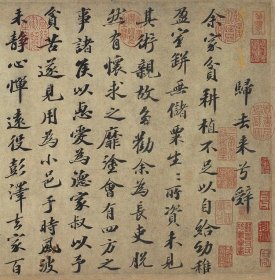 歸去来兮辭
余家貧耕植不足以自給幼稚
盈室缾無儲粟生〻所資未見
其術親故多勸余為長吏脱
然有懷求之靡塗會有四方之
事諸侯以惠愛為德家叔以予
貧苦遂見用為小邑于時風波
未静心憚遠役彭澤去家百